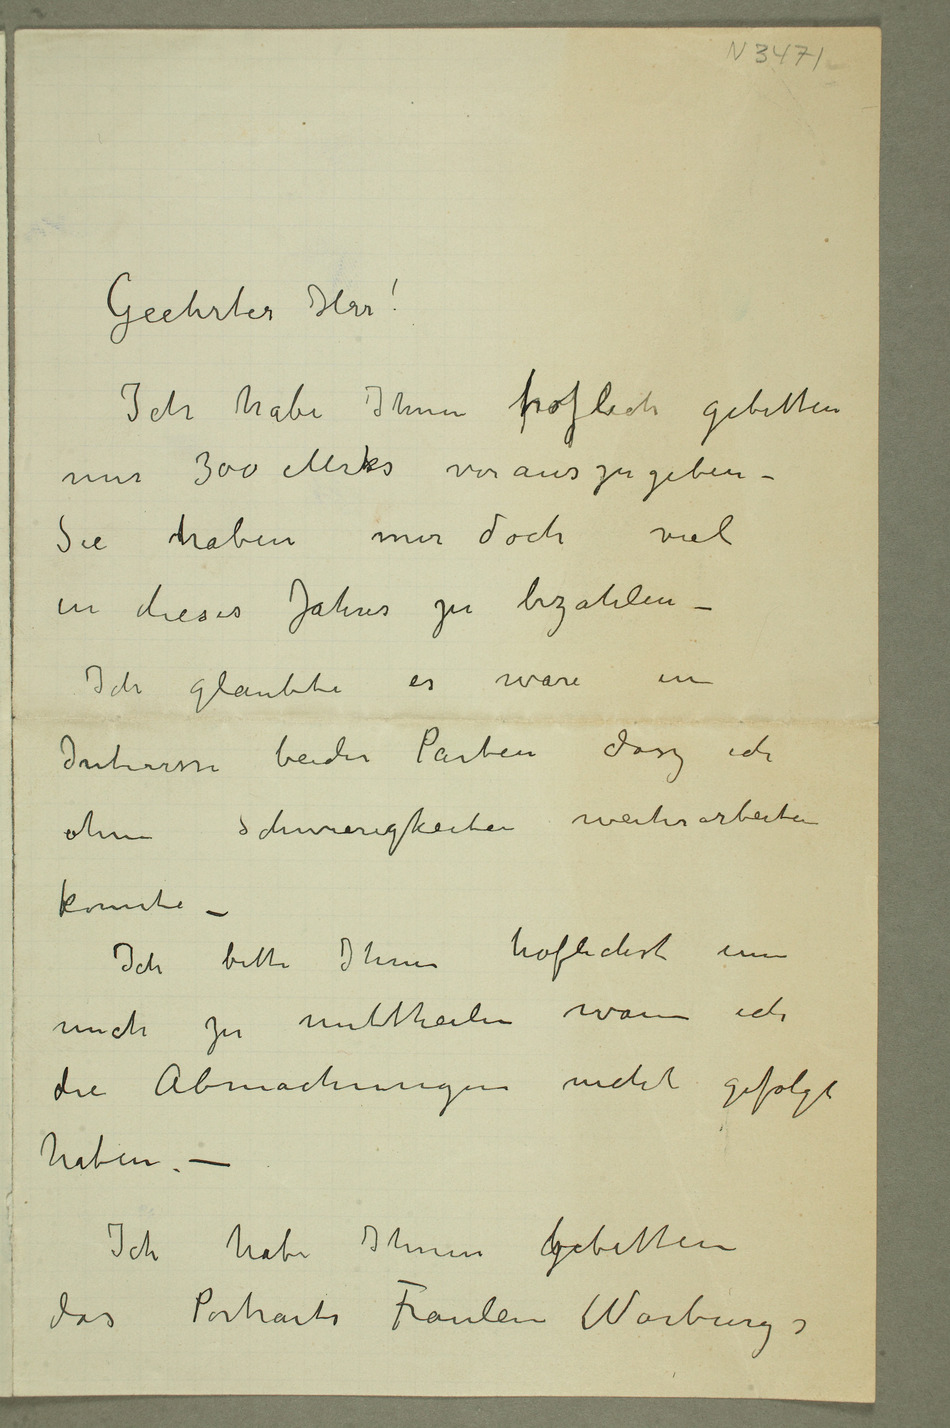 N 3471
Geehrter Herr!
Ich habe Ihnen höflich gebitten
mir 300 Mrks vorauszugeben –
Sie haben mir doch viel
in dieses Jahres zu bezahlen –
Ich glaubte es ware im
Interesse beider Parten dasz ich
ohne Schwierigkeiten weiterarbeiten
konnte –
Ich bitte Ihnen hoflichst um
mich zu mittheilen wann ich
die Abmachungen nicht gefolgt
haben. –
Ich habe Ihnen gebitten
das Portraits Fraulein Warburgs